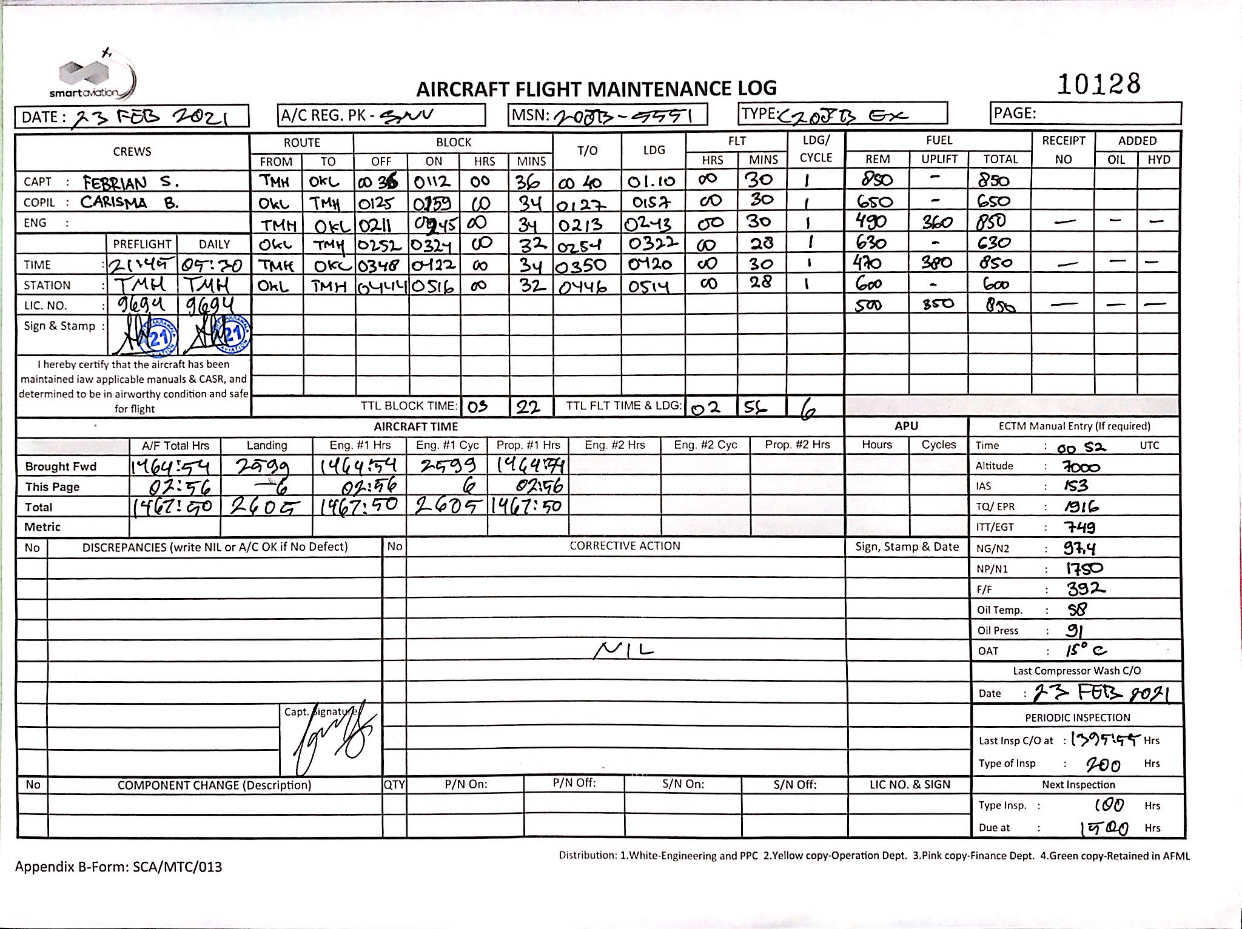 smartaviation
AIRCRAFT FLIGHT MAINTENANCE LOG
10128
DATE : 23 FEB 2021 A/C REG. PK - SNV MSN: 208B-5551 TYPE: C208B EX PAGE:
CREWS ROUTE BLOCK T/O LDG FLT LDG/ CYCLE FUEL RECEIPT NO ADDED
FROM TO OFF ON HRS MINS HRS MINS REM UPLIFT TOTAL OIL HYD
CAPT : FEBRIAN S. TMH OKL 00 36 0112 00 36 00 40 01.10 00 30 1 850 - 850
COPIL : CARISMA B. OKL TMH 0125 0159 00 34 0127 0157 00 30 1 650 - 650
ENG : TMH OKL 0211 0245 00 34 0213 0243 00 30 1 490 360 850 — — —
PREFLIGHT DAILY OKL TMH 0252 0324 00 32 0254 0322 00 28 1 630 - 630
TIME : 21:45 05:30 TMH OKL 0348 0422 00 34 0350 0420 00 30 1 470 380 850 — — —
STATION : TMH TMH OKL TMH 0444 0516 00 32 0446 0514 00 28 1 600 - 600
LIC. NO. : 9694 9694 500 350 850 — — —
Sign & Stamp : 21 21
I hereby certify that the aircraft has been
maintained iaw applicable manuals & CASR, and
determined to be in airworthy condition and safe
for flight
TTL BLOCK TIME: 03 22 TTL FLT TIME & LDG: 02 56 6
AIRCRAFT TIME APU ECTM Manual Entry (If required)
A/F Total Hrs Landing Eng. #1 Hrs Eng. #1 Cyc Prop. #1 Hrs Eng. #2 Hrs Eng. #2 Cyc Prop. #2 Hrs Hours Cycles Time : 00 52 UTC
Brought Fwd 1464:54 2599 1464:54 2599 1464:54 Altitude : 7000
This Page 02:56 6 02:56 6 02:56 IAS : 153
Total 1467:50 2605 1467:50 2605 1467:50 TQ/ EPR : 1916
Metric ITT/EGT : 749
No DISCREPANCIES (write NIL or A/C OK if No Defect) No CORRECTIVE ACTION Sign, Stamp & Date NG/N2 : 97,4
NP/N1 : 1750
F/F : 392
Oil Temp. : 58
Oil Press : 91
NIL OAT : 15° C
Last Compressor Wash C/O
Date : 23 FEB 2021
Capt. Signature
PERIODIC INSPECTION
Last Insp C/O at : 1395:55 Hrs
Type of Insp : 200 Hrs
No COMPONENT CHANGE (Description) QTY P/N On: P/N Off: S/N On: S/N Off: LIC NO. & SIGN Next Inspection
Type Insp. : 100 Hrs
Due at : 1500 Hrs
Distribution: 1.White-Engineering and PPC 2.Yellow copy-Operation Dept. 3.Pink copy-Finance Dept. 4.Green copy-Retained in AFML
Appendix B-Form: SCA/MTC/013